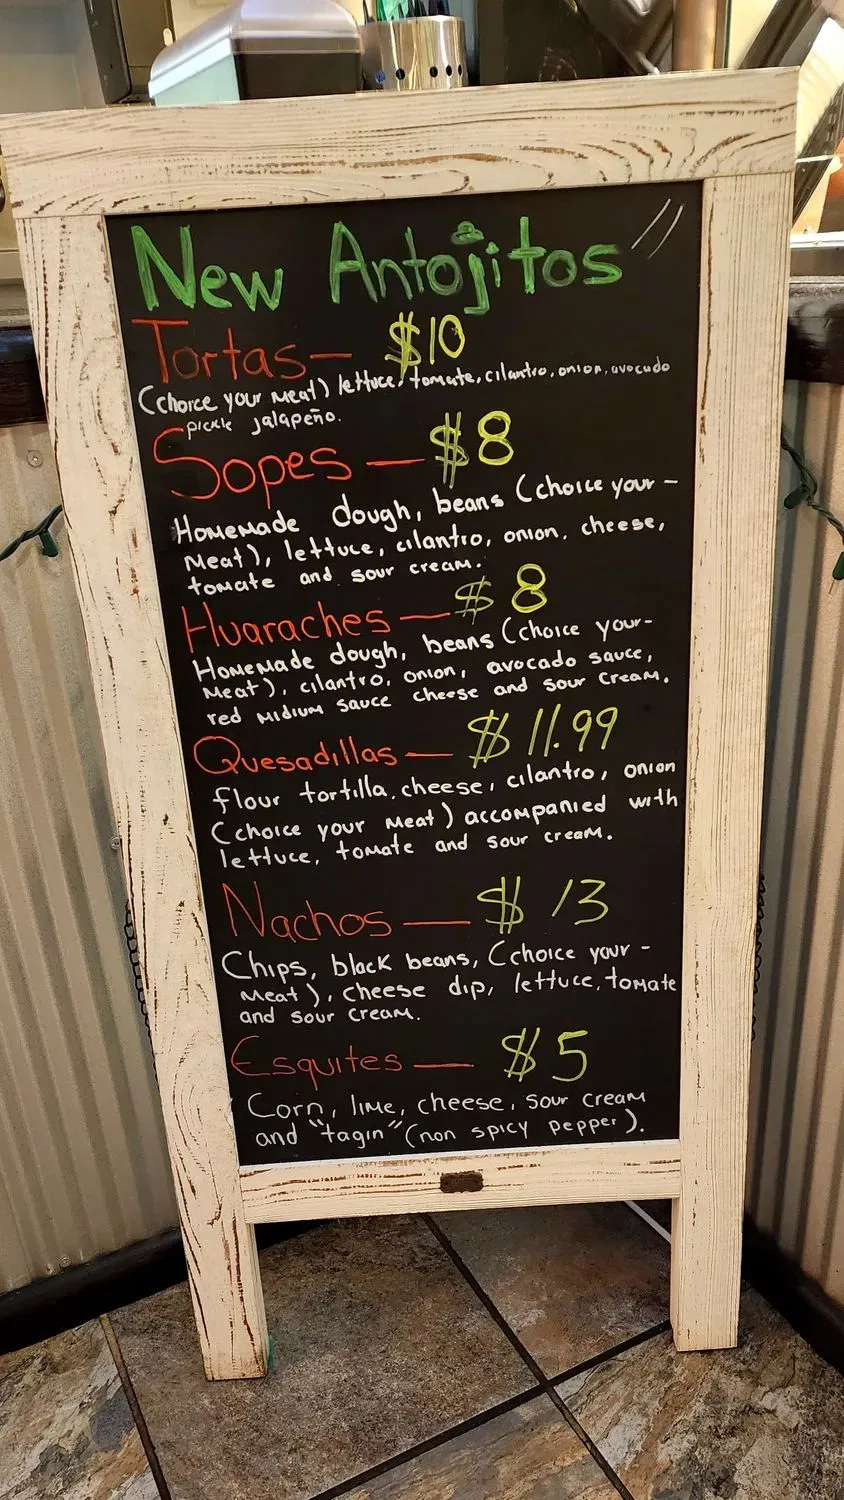 New Antojitos
Tortas — $10
(choice your meat) lettuce, tomate, cilantro, onion, avocado
pickle jalapeño.
Sopes — $8
Homemade dough, beans (choice your -
meat), lettuce, cilantro, onion, cheese,
tomate and sour cream.
Huaraches — $8
Homemade dough, beans (choice your-
meat), cilantro, onion, avocado sauce,
red midium sauce cheese and sour cream.
Quesadillas — $11.99
flour tortilla, cheese, cilantro, onion
(choice your meat) accompanied with
lettuce, tomate and sour cream.
Nachos — $13
Chips, black beans, (choice your -
meat), cheese dip, lettuce, tomate
and sour cream.
Esquites — $5
Corn, lime, cheese, sour cream
and "tagin" (non spicy pepper).